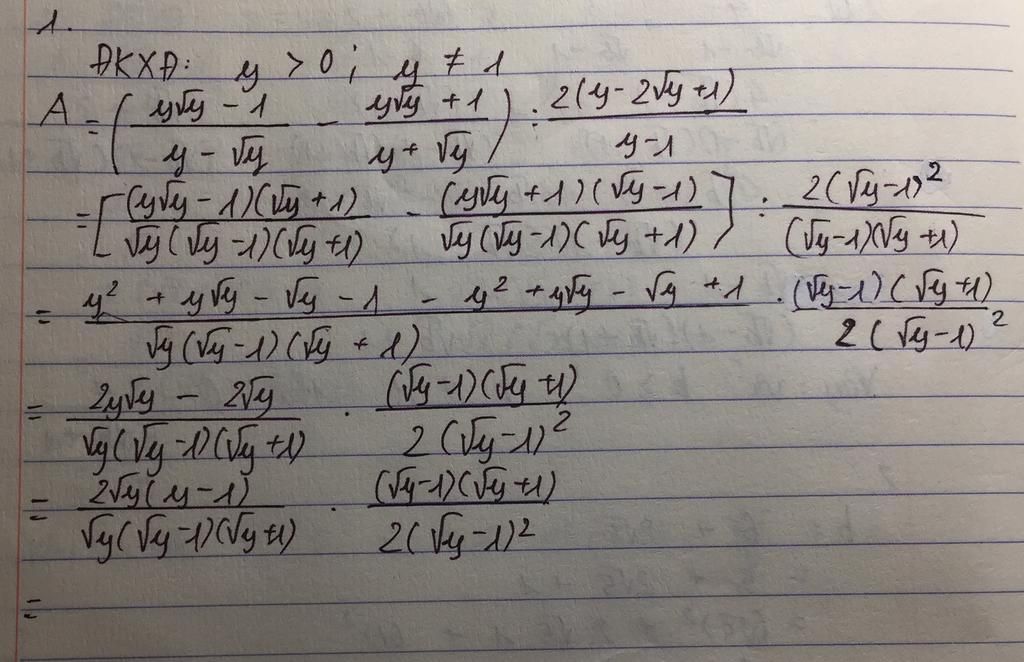 1.
ĐKXĐ: y > 0 ; y ≠ 1
A = ( (y√y - 1)/(y - √y) - (y√y + 1)/(y + √y) ) : 2(y - 2√y + 1)/(y - 1)
= [ (y√y - 1)(√y + 1)/(√y(√y - 1)(√y + 1)) - (y√y + 1)(√y - 1)/(√y(√y - 1)(√y + 1)) ] : 2(√y - 1)²/((√y - 1)(√y + 1))
= (y² + y√y - √y - 1 - y² + y√y - √y + 1)/(√y(√y - 1)(√y + 1)) · (√y - 1)(√y + 1)/(2(√y - 1)²)
= (2y√y - 2√y)/(√y(√y - 1)(√y + 1)) · (√y - 1)(√y + 1)/(2(√y - 1)²)
= 2√y(y - 1)/(√y(√y - 1)(√y + 1)) · (√y - 1)(√y + 1)/(2(√y - 1)²)
=